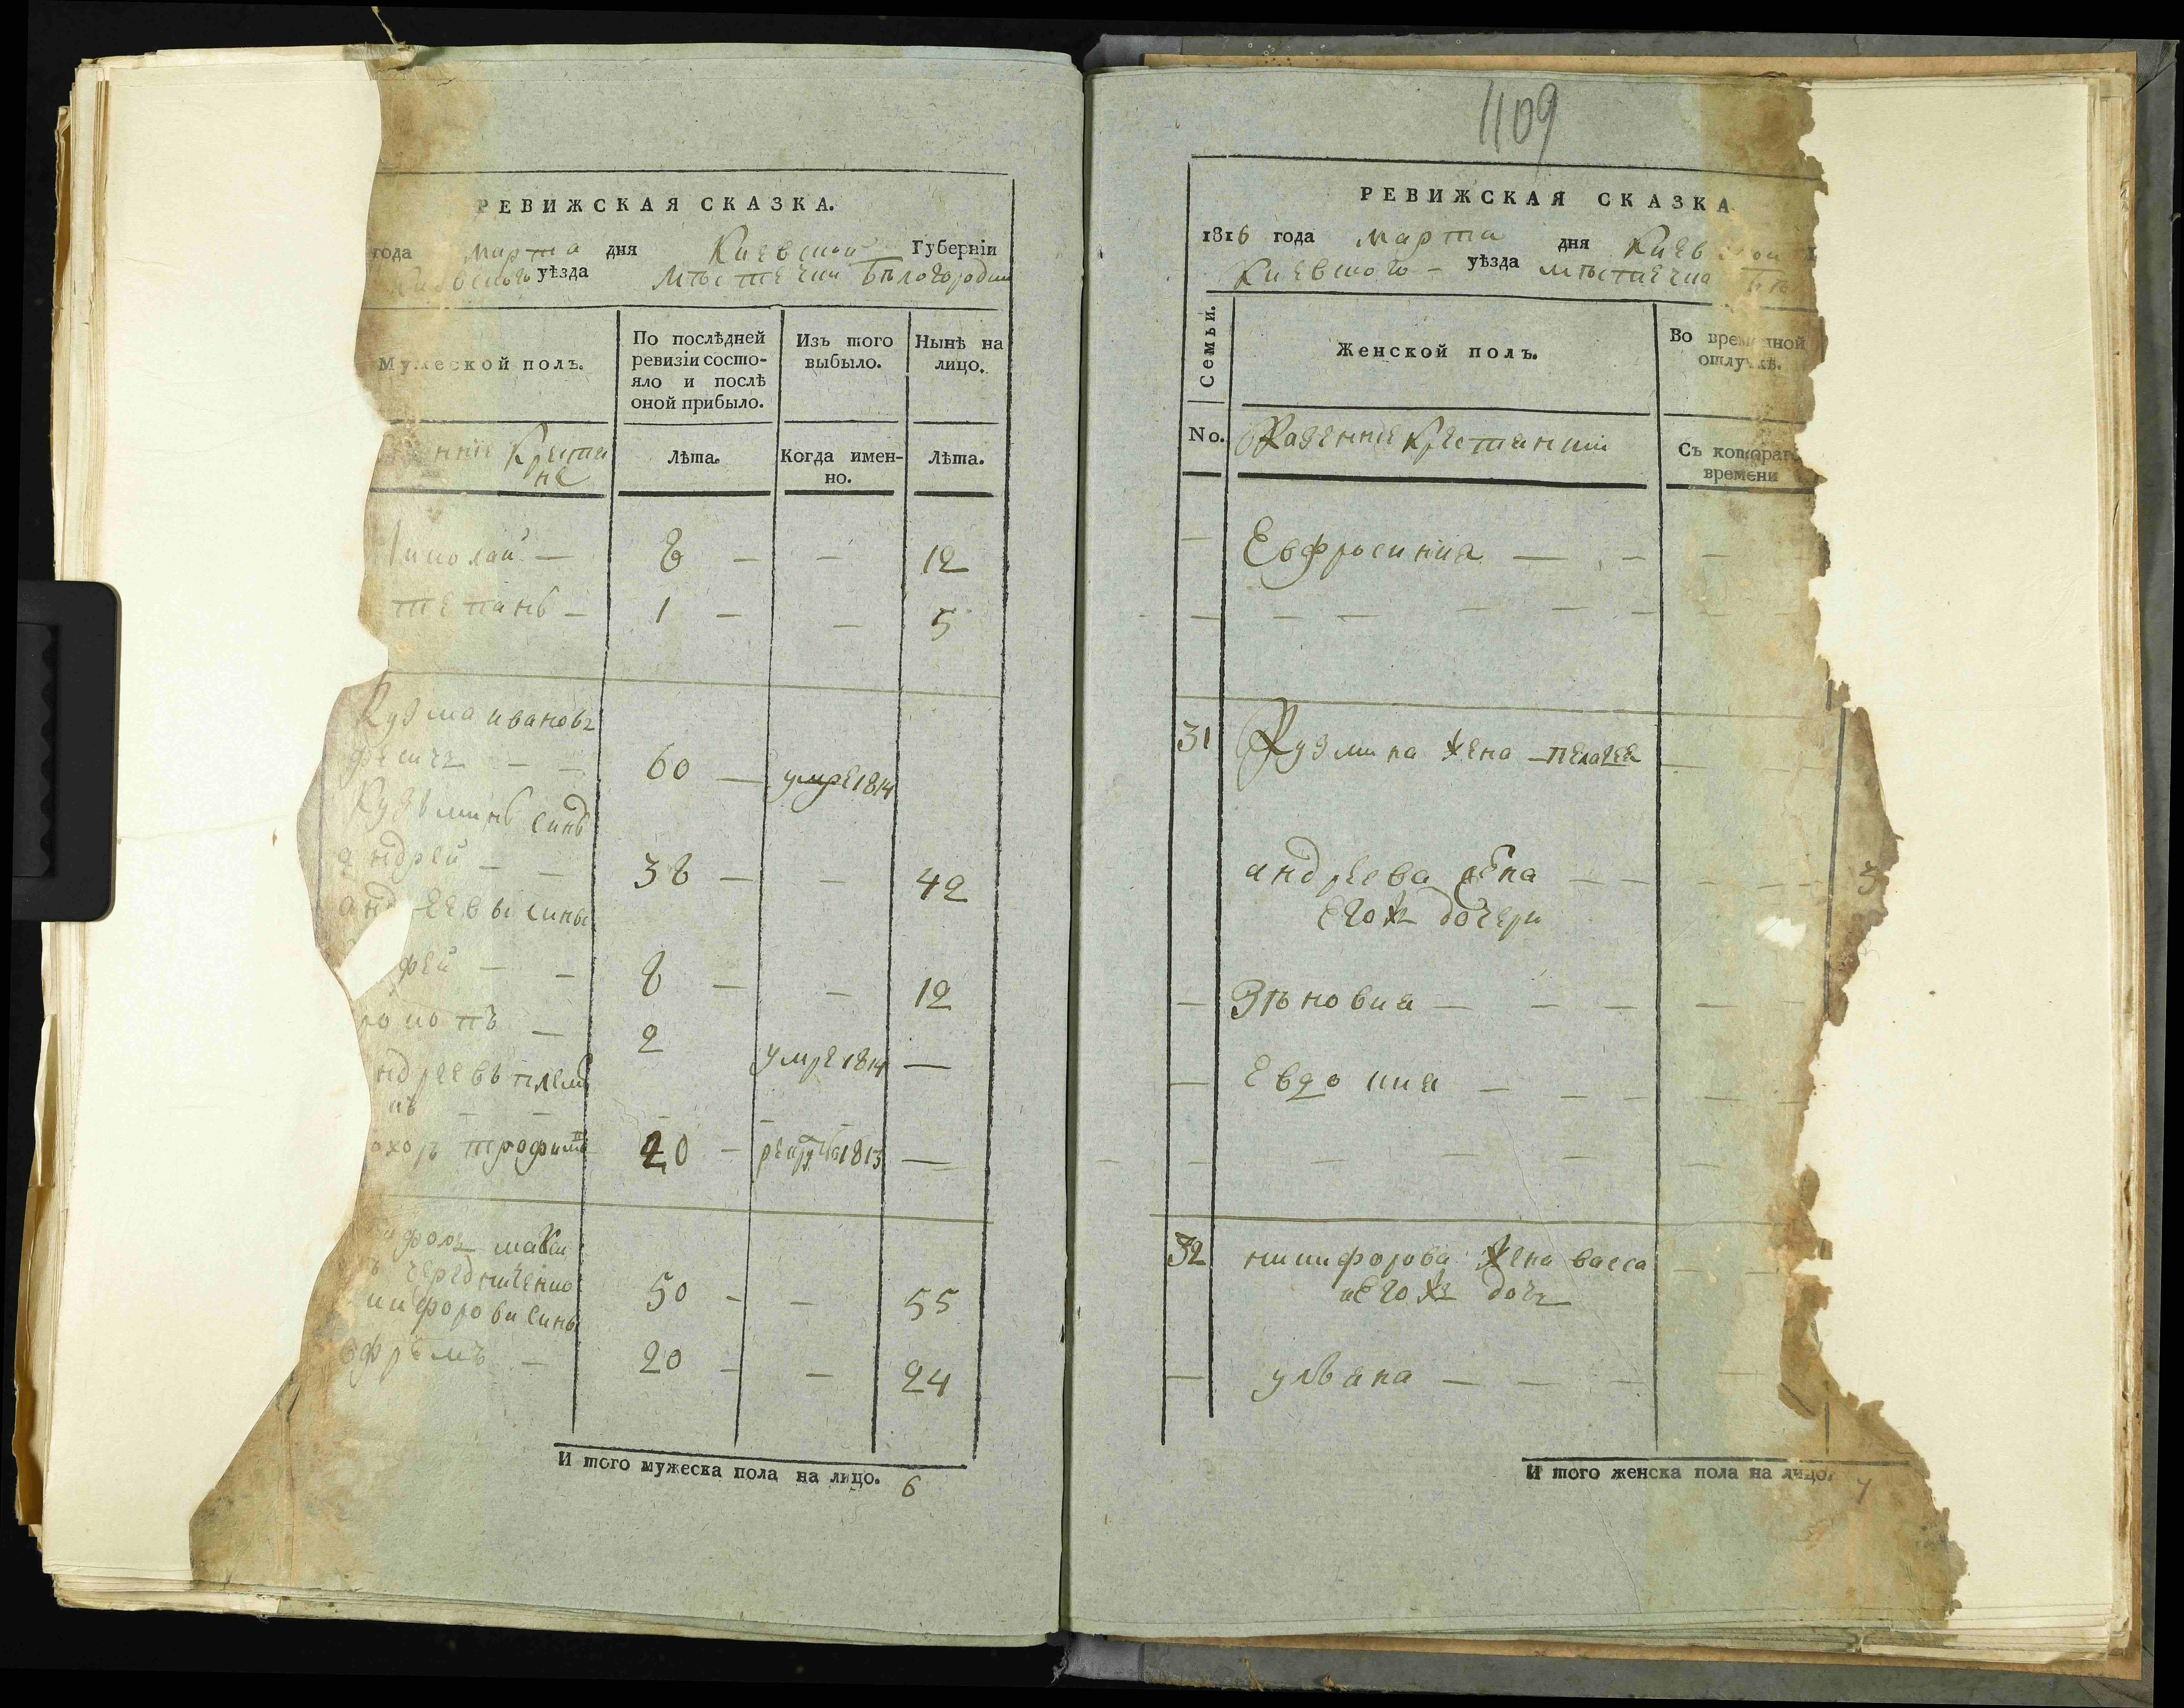 РЕВИЖСКАЯ СКАЗКА.
года марта дня Киевской Губернiи
уѣзда мѣстечки Бѣлогородки
Мужеской полъ.
По послѣдней
ревизiи состо-
яло и послѣ
оной прибыло.
Изъ того
выбыло.
Нынѣ на
лицо.
нніе Крестя
не
Лѣта.
Когда имен-
но.
Лѣта.
николай — 8 — — 12
тепанъ — 1 — — 5
Кузма ивановъ
60 — умре 1814
Кузминъ синъ
андрей — — 38 — — 42
андреевы сины
фей — — 8 — — 12
рокопъ — 2 умре 1814 —
ндреевъ племя
къ — —
охоръ трофимъ 20 — 1813 —
ифоръ макси
ъ чередниченко 50 — — 55
кифорови сины
ефремъ — 20 — — 24
И того мужеска пола на лицо. 6
1109
РЕВИЖСКАЯ СКАЗКА
1816 года марта дня Киев
Киевского — уѣзда мѣстечка Бѣ
Семьи.
Женской полъ.
Во временной
отлучкѣ.
No.
Казеннie крестянки
Съ котораго
времени
— Евфросиния — —
31 Кузмина жена — пелагея
андреева жена — —
егожъ дочери
— Зѣновия — — —
— Евдокия — — —
32 никифорова жена васса
егожъ дочъ
— улвяна — — —
И того женска пола на лицо.